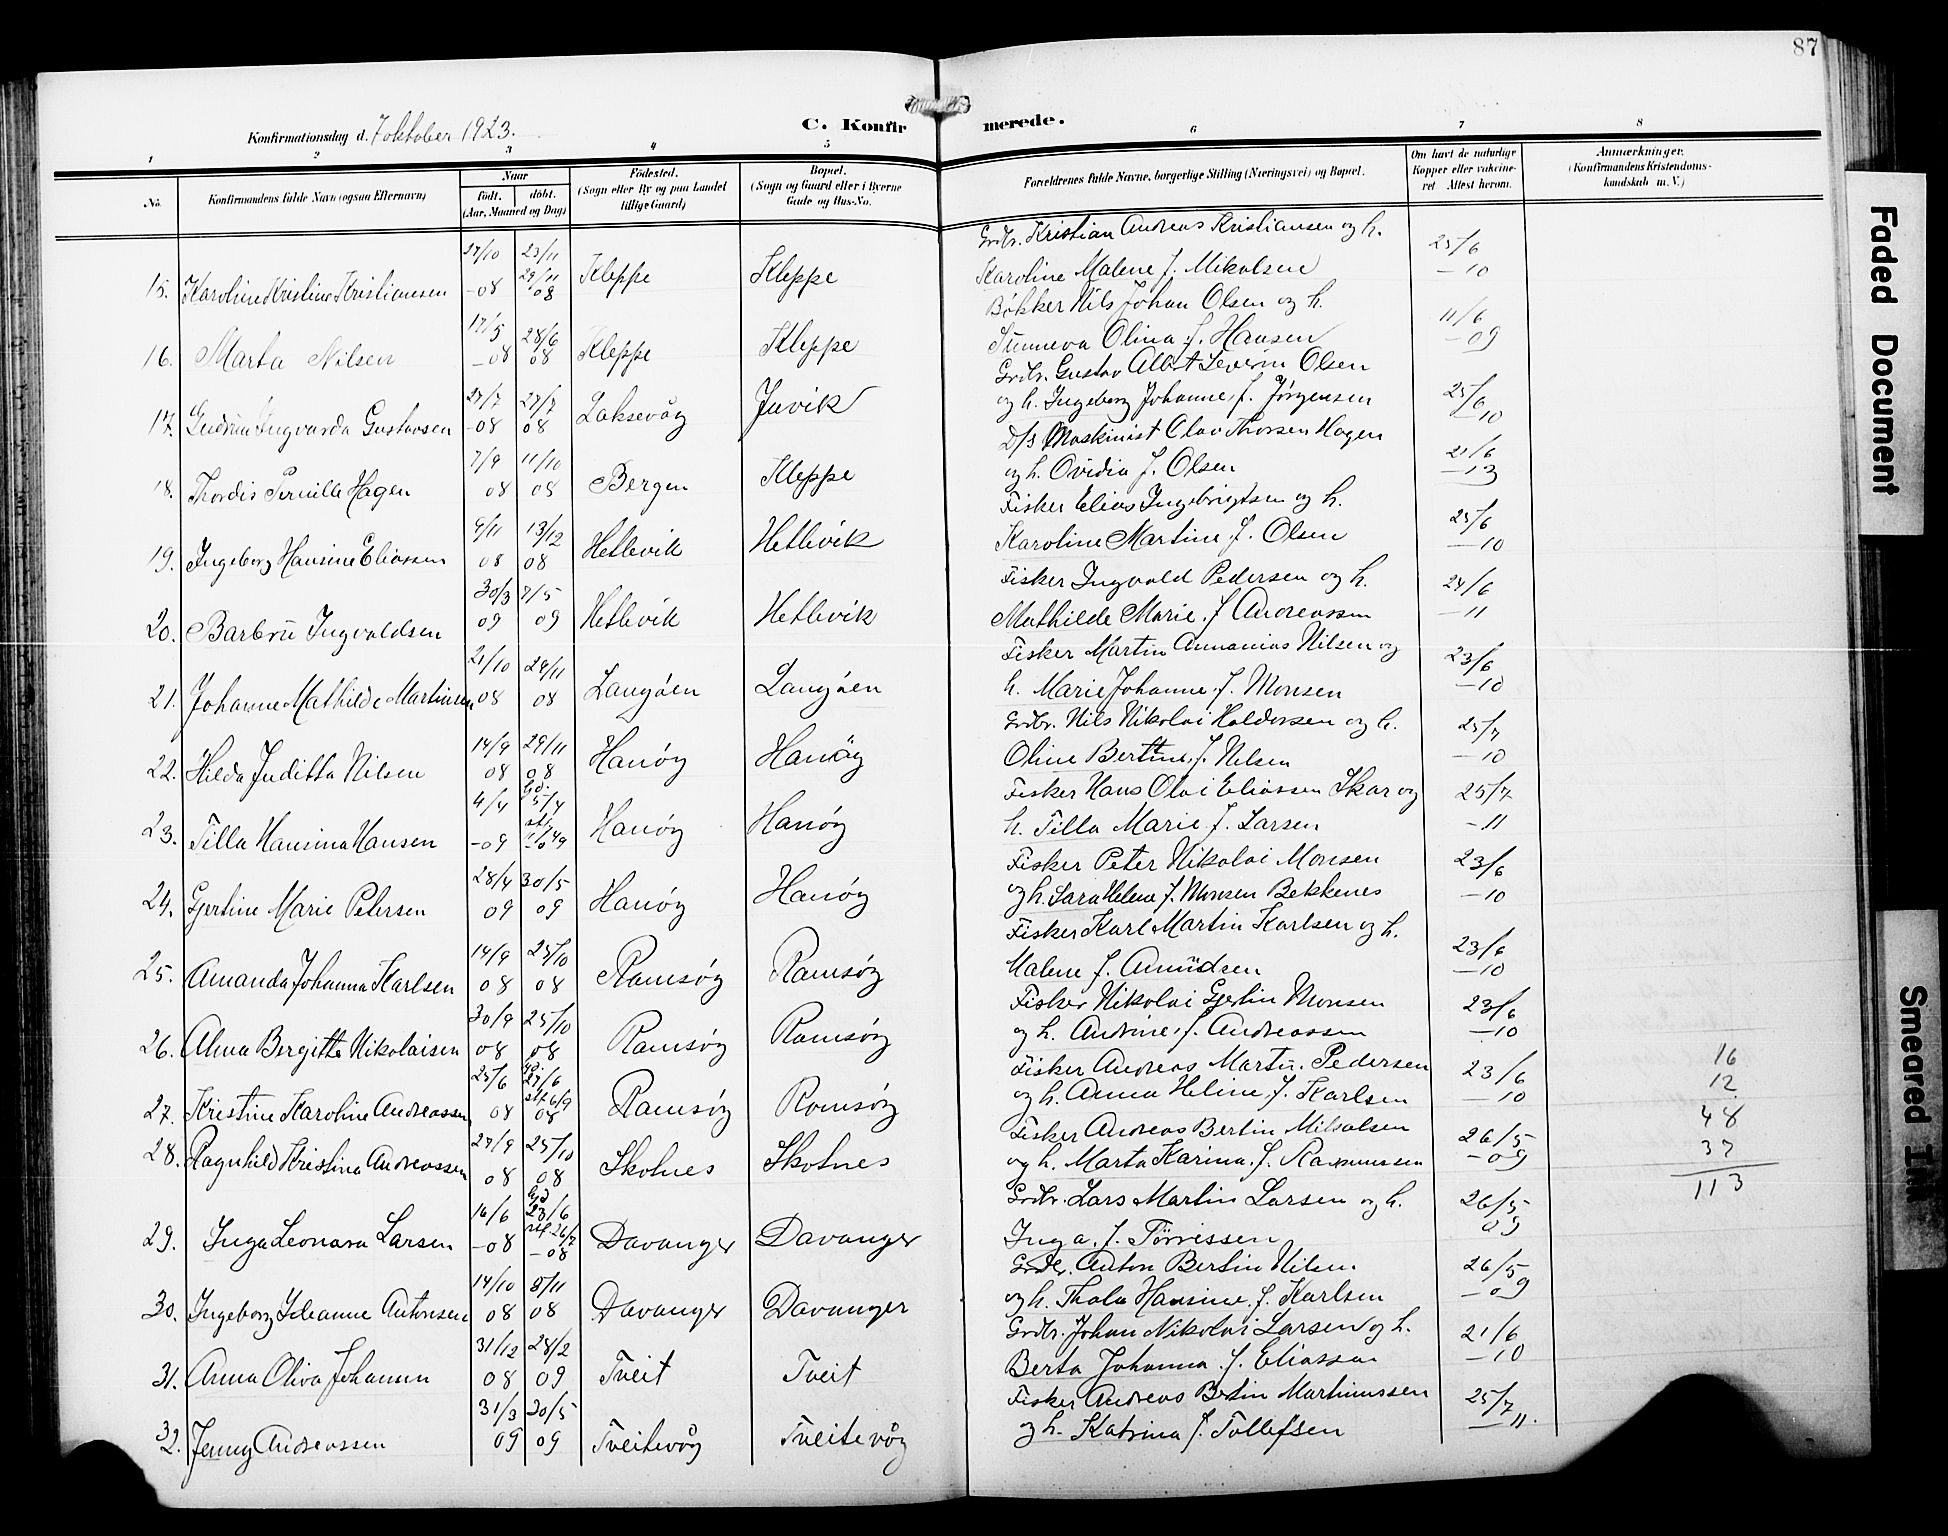 87
Konfirmationsdag d. 7 oktober 1923.
C. Konfirmerede.
1 2 3 4 5 6 7 8
No.
Konfirmandens fulde Navn (ogsaa Efternavn)
Naar
født. døbt.
(Aar, Maaned og Dag)
Fødested.
(Sogn eller By og paa Landet
tillige Gaard)
Bopæl.
(Sogn og Gaard eller i Byerne
Gade og Hus-No.
Forældrenes fulde Navne, borgerlige Stilling (Næringsvei) og Bopæl.
Om havt de naturlige
Kopper eller vakcine-
ret Attest herom.
Anmærkninger.
(Konfirmandens Kristendoms-
kundskab m. V.)
15. Karoline Kristine Kristiansen 27/10 -08 29/11 08 Kleppe Kleppe
Grdbr. Kristian Andreas Kristiansen og h.
Karoline Malene f. Mikalsen 25/6 -10
16. Marta Nilsen 17/5 -08 28/6 08 Kleppe Kleppe
Bøkker Nils Johan Olsen og h.
Sunneva Olina f. Hansen 11/6 -09
17. Gudrun Ingvarda Gustavsen 27/7 -08 27/7 08 Laksevåg Juvik
Grdbr. Gustav Albert Severin Olsen
og h. Ingeborg Johanne f. Jørgensen 25/6 -10
18. Thordis Pernille Hagen 7/9 08 11/10 08 Bergen Kleppe
D/s Maskinist Olav Thorsen Hagen
og h. Ovidia f. Olsen 21/6 -13
19. Ingeborg Hansine Eliassen 9/11 08 13/12 08 Hetlevik Hetlevik
Fisker Elias Ingebrigtsen og h.
Karoline Martine f. Olsen 25/6 -10
20. Barbru Ingvaldsen 30/3 09 7/5 09 Hetlevik Hetlevik
Fisker Ingvald Pedersen og h.
Mathilde Marie f. Andreassen 24/6 -11
21. Johanne Mathilde Martinsen 21/10 08 29/11 08 Langøen Langøen
Fisker Martin Annanias Nilsen og
h. Marie Johanne f. Monsen 23/6 -10
22. Hilda Juditta Nilsen 14/9 08 29/11 08 Hanøy Hanøy
Grdbr. Nils Nikolai Haldorsen og h.
Oline Bertine f. Nilsen 25/7 -10
23. Tilla Hansina Hansen 4/4 -09 Hanøy Hanøy
Fisker Hans Olai Eliassen Skar og
h. Tilla Marie f. Larsen 25/7 -11
24. Gjertine Marie Petersen 28/4 09 30/5 09 Hanøy Hanøy
Fisker Peter Nikolai Monsen
og h. Sara Helene f. Monsen Bekkenes 23/6 -10
25. Amanda Johanna Karlsen 14/9 08 25/10 08 Ramsøy Ramsøy
Fisker Karl Martin Karlsen og h.
Malene f. Amundsen 23/6 -10
26. Alma Bergitte Nikolaisen 30/9 08 25/10 08 Ramsøy Ramsøy
Fisker Nikolai Gjertin Monsen
og h. Andrine, f. Andreassen 23/6 -10
27. Kristine Karoline Andreassen 25/6 08 27/6 stf. 6/9 08 Ramsøy Ramsøy
Fisker Andreas Martin Pedersen
og h. Anna Heline f. Karlsen 23/6 -10
28. Ragnhild Kristina Andreassen 27/9 08 25/10 08 Skotnes Skotnes
Fisker Andreas Bertin Mikalsen
og h. Marta Karina. f. Rasmussen 26/5 -09
29. Inga Leonara Larsen 16/6 -08 23/6 stf. 26/7 -08 Davanger Davanger
Grdbr. Lars Martin Larsen og h.
Inga. f. Tørrissen 26/5 09
30. Ingeborg Johanne Antonsen 14/10 08 8/11 08 Davanger Davanger
Grdbr. Anton Bertin Nilsen
og h. Thala Hansine f. Karlsen 26/5 -09
31. Anna Oliva Johansen 31/12 08 28/2 09 Tveit Tveit
Grdbr. Johan Nikolai Larsen og h.
Berta Johanna. f. Eliassen 21/6 -10
32. Jenny Andreassen 31/3 09 20/5 09 Tveitevåg Tveitevåg
Fisker Andreas Bertin Martinussen
og h. Katrina f. Tollefsen 25/7 -11.
16
12
48
37
113
Faded Document
Smeared Ink